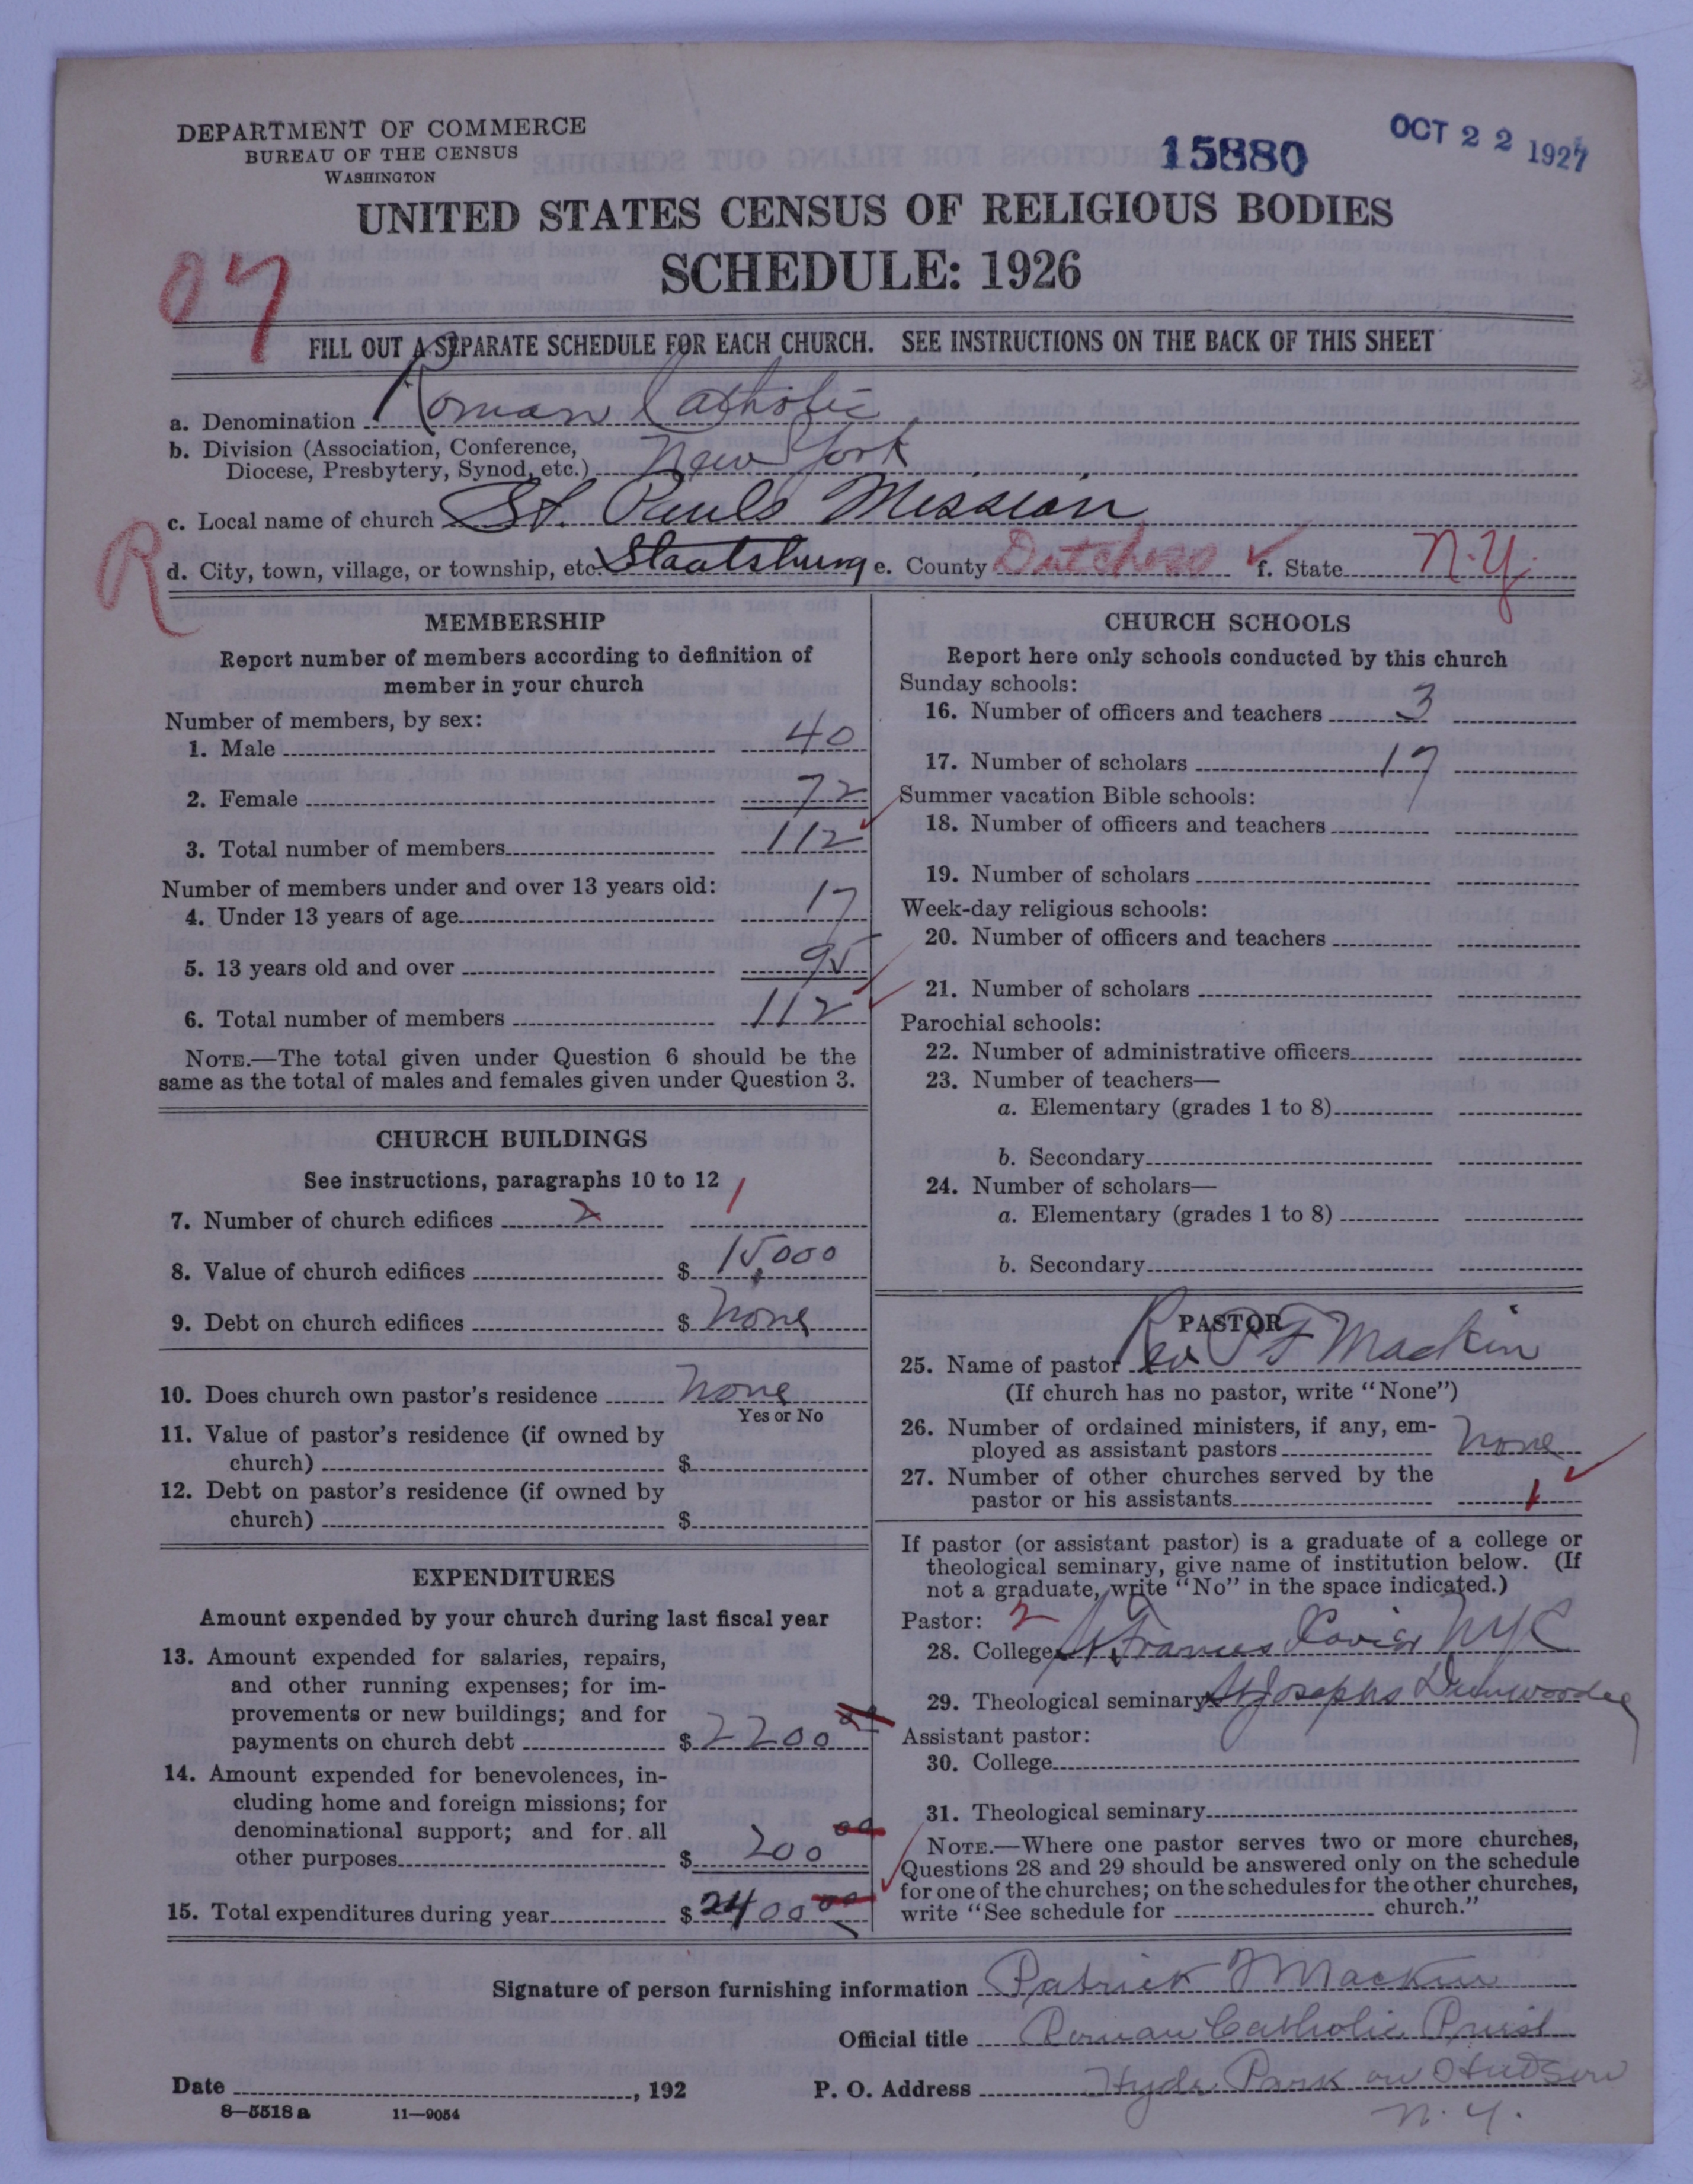 DEPARTMENT OF COMMERCE
BUREAU OF THE CENSUS
WASHINGTON
15880
OCT 22 1927
UNITED STATES CENSUS OF RELIGIOUS BODIES
SCHEDULE: 1926
07
FILL OUT A SEPARATE SCHEDULE FOR EACH CHURCH. SEE INSTRUCTIONS ON THE BACK OF THIS SHEET
a. Denomination Roman Catholic
b. Division (Association, Conference,
Diocese, Presbytery, Synod, etc.) New York
c. Local name of church St. Pauls Mission
R
d. City, town, village, or township, etc. Staatsburg e. County Dutchess ✓ f. State N.Y.
MEMBERSHIP
Report number of members according to definition of
member in your church
Number of members, by sex:
1. Male 40
2. Female 72
3. Total number of members 112 ✓
Number of members under and over 13 years old:
4. Under 13 years of age 17
5. 13 years old and over 95
6. Total number of members 112 ✓
NOTE.—The total given under Question 6 should be the
same as the total of males and females given under Question 3.
CHURCH BUILDINGS
See instructions, paragraphs 10 to 12
7. Number of church edifices 2 1
8. Value of church edifices $ 15,000
9. Debt on church edifices $ None
10. Does church own pastor's residence None
Yes or No
11. Value of pastor's residence (if owned by
church) $
12. Debt on pastor's residence (if owned by
church) $
EXPENDITURES
Amount expended by your church during last fiscal year
13. Amount expended for salaries, repairs,
and other running expenses; for im-
provements or new buildings; and for
payments on church debt $ 2200 00
14. Amount expended for benevolences, in-
cluding home and foreign missions; for
denominational support; and for all
other purposes $ 200 00
15. Total expenditures during year $ 2400 00
CHURCH SCHOOLS
Report here only schools conducted by this church
Sunday schools:
16. Number of officers and teachers 3
17. Number of scholars 17
Summer vacation Bible schools:
18. Number of officers and teachers
19. Number of scholars
Week-day religious schools:
20. Number of officers and teachers
21. Number of scholars
Parochial schools:
22. Number of administrative officers
23. Number of teachers—
a. Elementary (grades 1 to 8)
b. Secondary
24. Number of scholars—
a. Elementary (grades 1 to 8)
b. Secondary
PASTOR
25. Name of pastor Rev P F Mackin
(If church has no pastor, write "None")
26. Number of ordained ministers, if any, em-
ployed as assistant pastors None
27. Number of other churches served by the
pastor or his assistants 1 ✓
If pastor (or assistant pastor) is a graduate of a college or
theological seminary, give name of institution below. (If
not a graduate, write "No" in the space indicated.)
Pastor: 2
28. College St Francis Xavier NYC
29. Theological seminary St Josephs Dunwoodie
Assistant pastor:
30. College
31. Theological seminary
NOTE.—Where one pastor serves two or more churches,
Questions 28 and 29 should be answered only on the schedule
for one of the churches; on the schedules for the other churches,
write "See schedule for church."
Signature of person furnishing information Patrick F Mackin
Official title Roman Catholic Priest
Date , 192 P. O. Address Hyde Park on Hudson
N. Y.
8—5518 a 11—9054